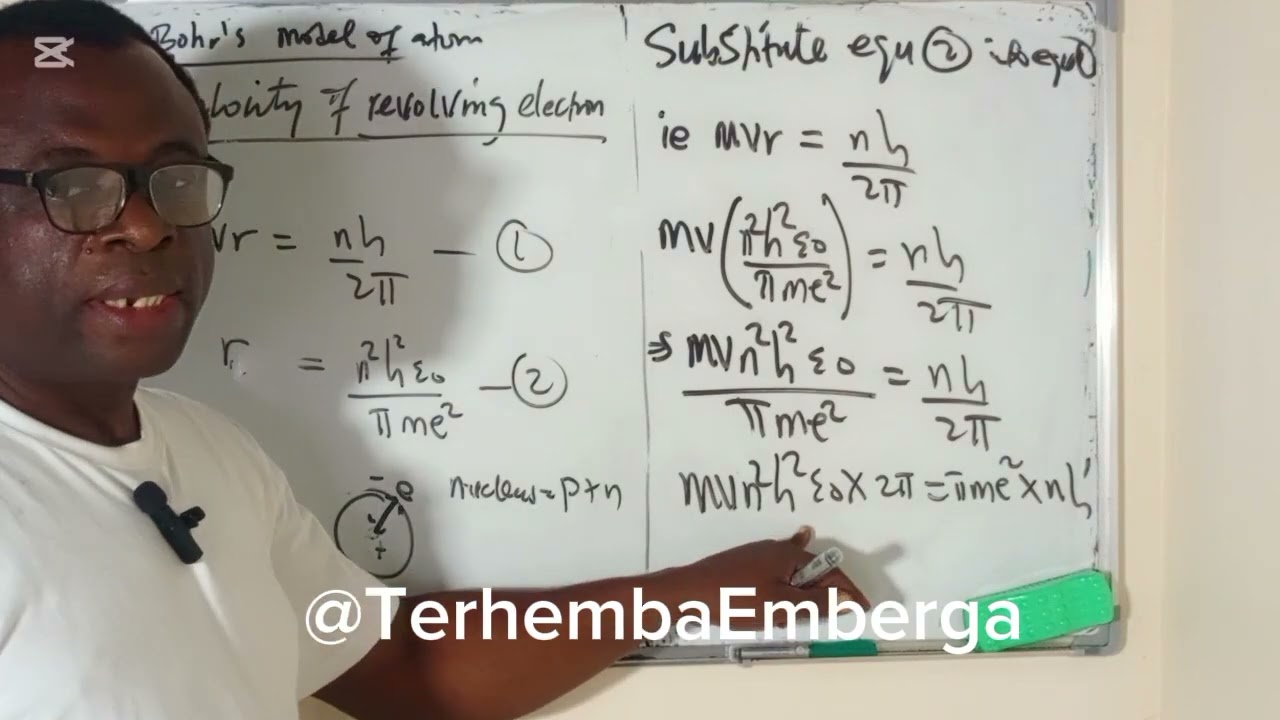 Bohr's model of atom
locity of revolving electron
vr = nh/2π — ①
r = n²h²ε0/πme² — ②
nucleus = p+n
- e
+
Substitute equ ② into equ ①
ie mvr = nh/2π
mv(n²h²ε0/πme²) = nh/2π
⇒ mvn²h²ε0/πme² = nh/2π
mvn²h²ε0 × 2π = πme² × nh
@TerhembaEmberga